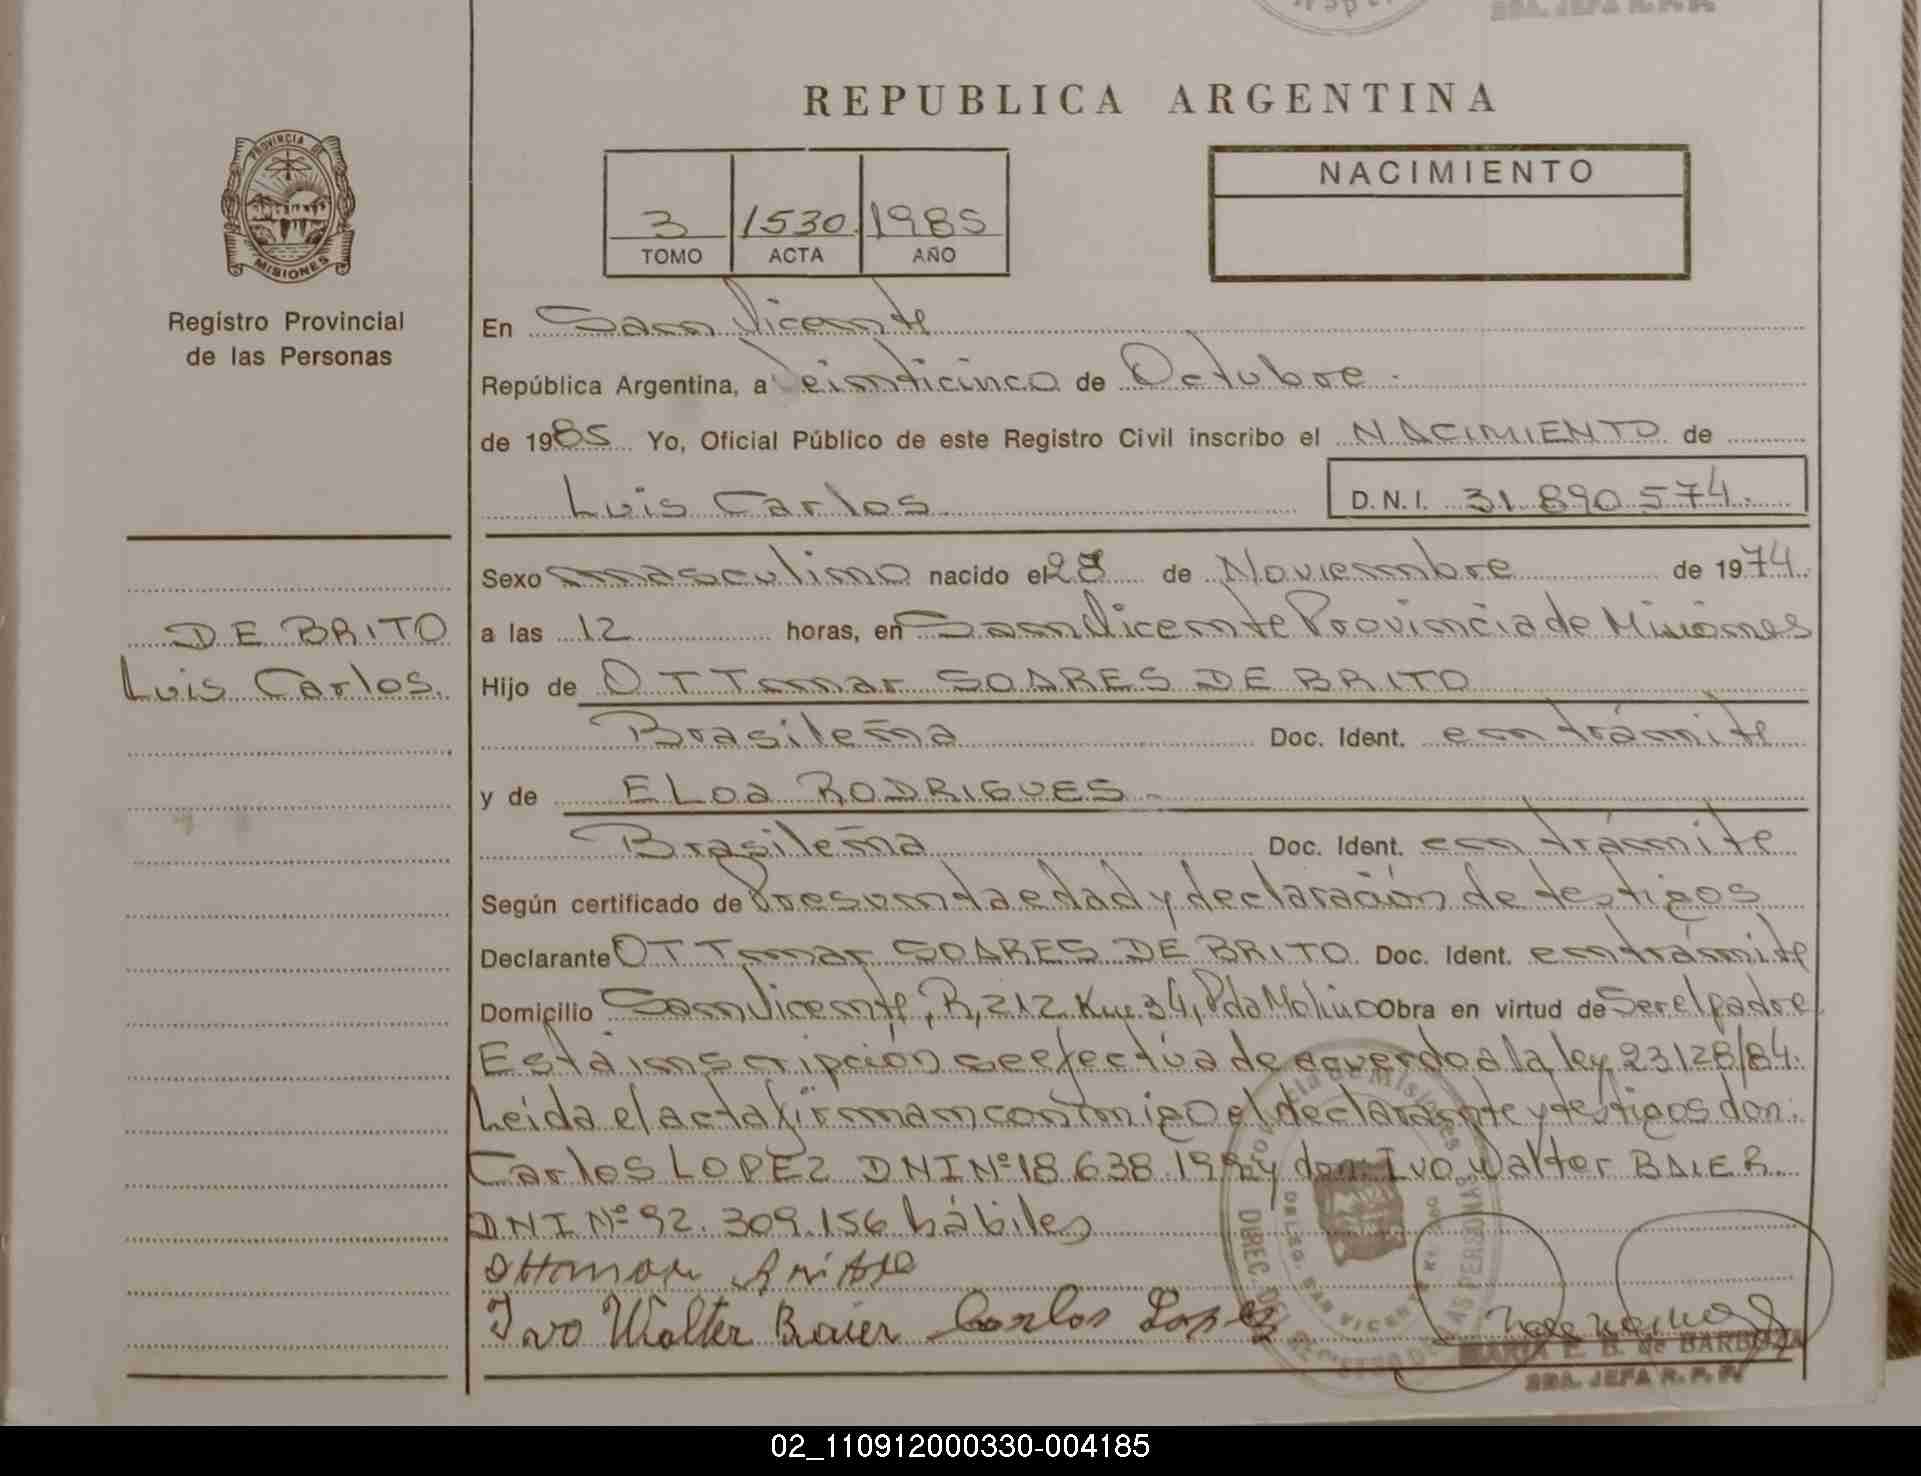 REPUBLICA ARGENTINA
PROVINCIA DE
MISIONES
Registro Provincial
de las Personas
3 1530 1985
TOMO ACTA AÑO
NACIMIENTO
En San Vicente
República Argentina, a Veinticinco de Octubre.
de 1985 Yo, Oficial Público de este Registro Civil inscribo el NACIMIENTO de
Luis Carlos D.N.I. 31.890.574.
Sexo masculino nacido el 28 de Noviembre de 1974.
DE BRITO
Luis Carlos.
a las 12 horas, en San Vicente Provincia de Misiones
Hijo de OTTomar SOARES DE BRITO
Brasileña Doc. Ident. en trámite
y de ELOa RODRIGUES
Brasileña Doc. Ident. en trámite
Según certificado de Presunta edad y declaración de testigos
Declarante OTTomar SOARES DE BRITO Doc. Ident. en trámite
Domicilio San Vicente, R, 212 Km 34, Pda Obra en virtud de Ser el padre
Esta inscripción se efectúa de acuerdo a la ley 23128/84.
Leida el acta firman conmigo el declarante y testigos don:
Carlos LOPEZ DNI Nº 18.638. y don: Ivo Walter BAIER
DNI Nº 92.309.156 hábiles
Ottomar Brito
Ivo Walter Baier Carlos Lopez
MARIA E. B. de BARBOZA
SRA. JEFA R. P. P.
02_110912000330-004185